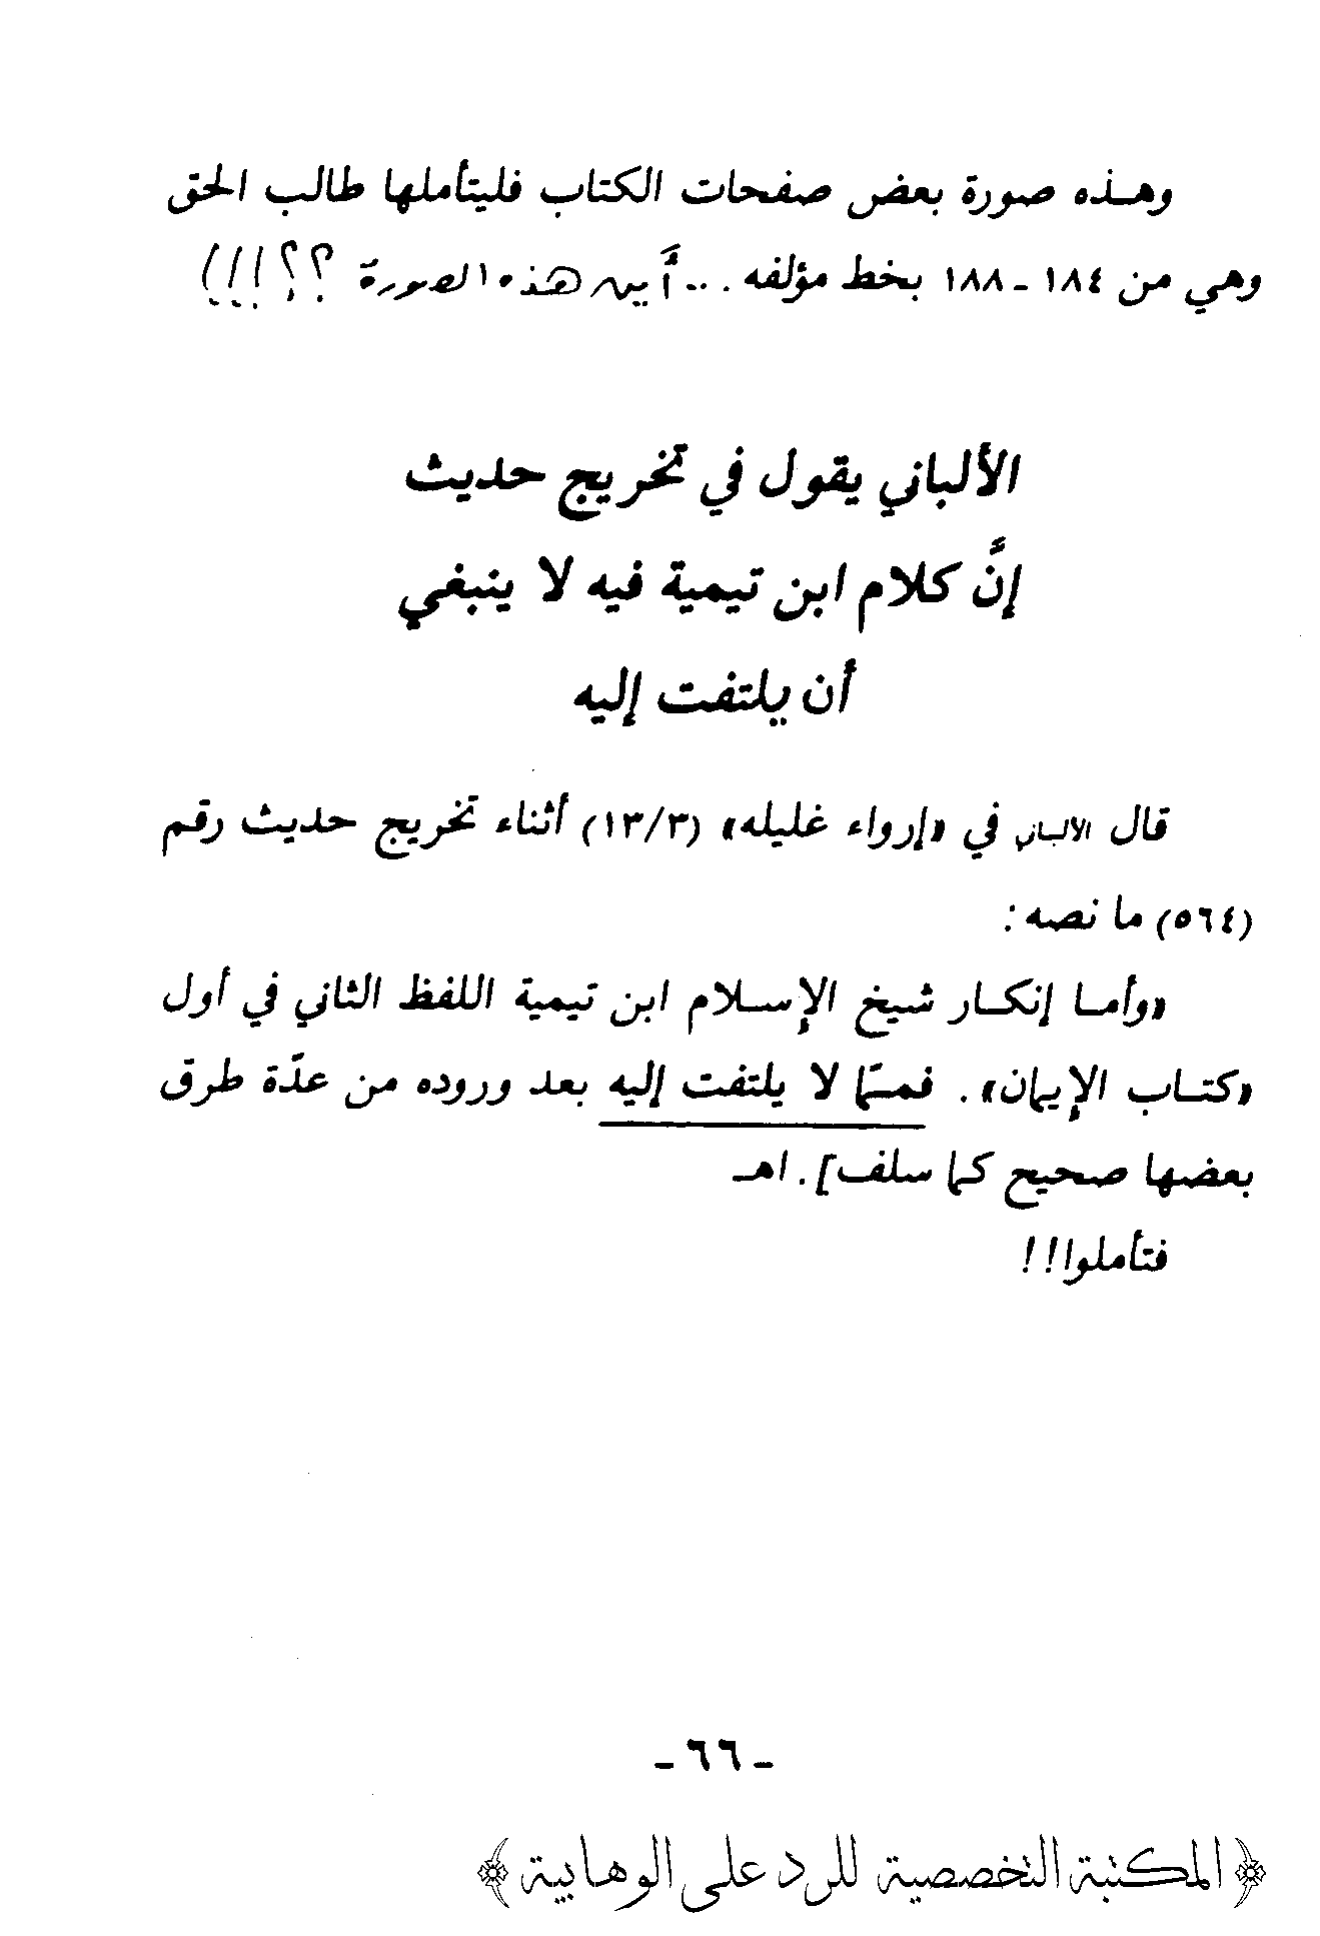 وهـذه صورة بعض صفحات الكتاب فليتأملها طالب الحق
وهي من ١٨٤ - ١٨٨ بخط مؤلفه . .. أين هذه الصورة ؟؟!!!
الألباني يقول في تخريج حديث
إنَّ كلام ابن تيمية فيه لا ينبغي
أن يلتفت إليه
قال الألباني في «إرواء غليله» (١٣/٣) أثناء تخريج حديث رقم
(٥٦٤) ما نصه :
«وأمـا إنكـار شيخ الإسـلام ابن تيمية اللفظ الثاني في أول
«كتـاب الإيمان» . فمـمّا لا يلتفت إليه بعد وروده من عدّة طرق
بعضها صحيح كما سلف] . اهـ
فتأملوا!!
- ٦٦ -
﴿المكتبة التخصصية للرد على الوهابية﴾